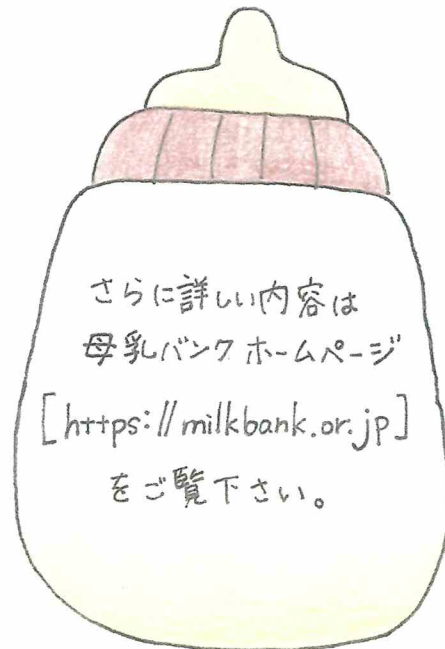 さらに詳しい内容は
母乳バンクホームページ
[https://milkbank.or.jp]
をご覧下さい。